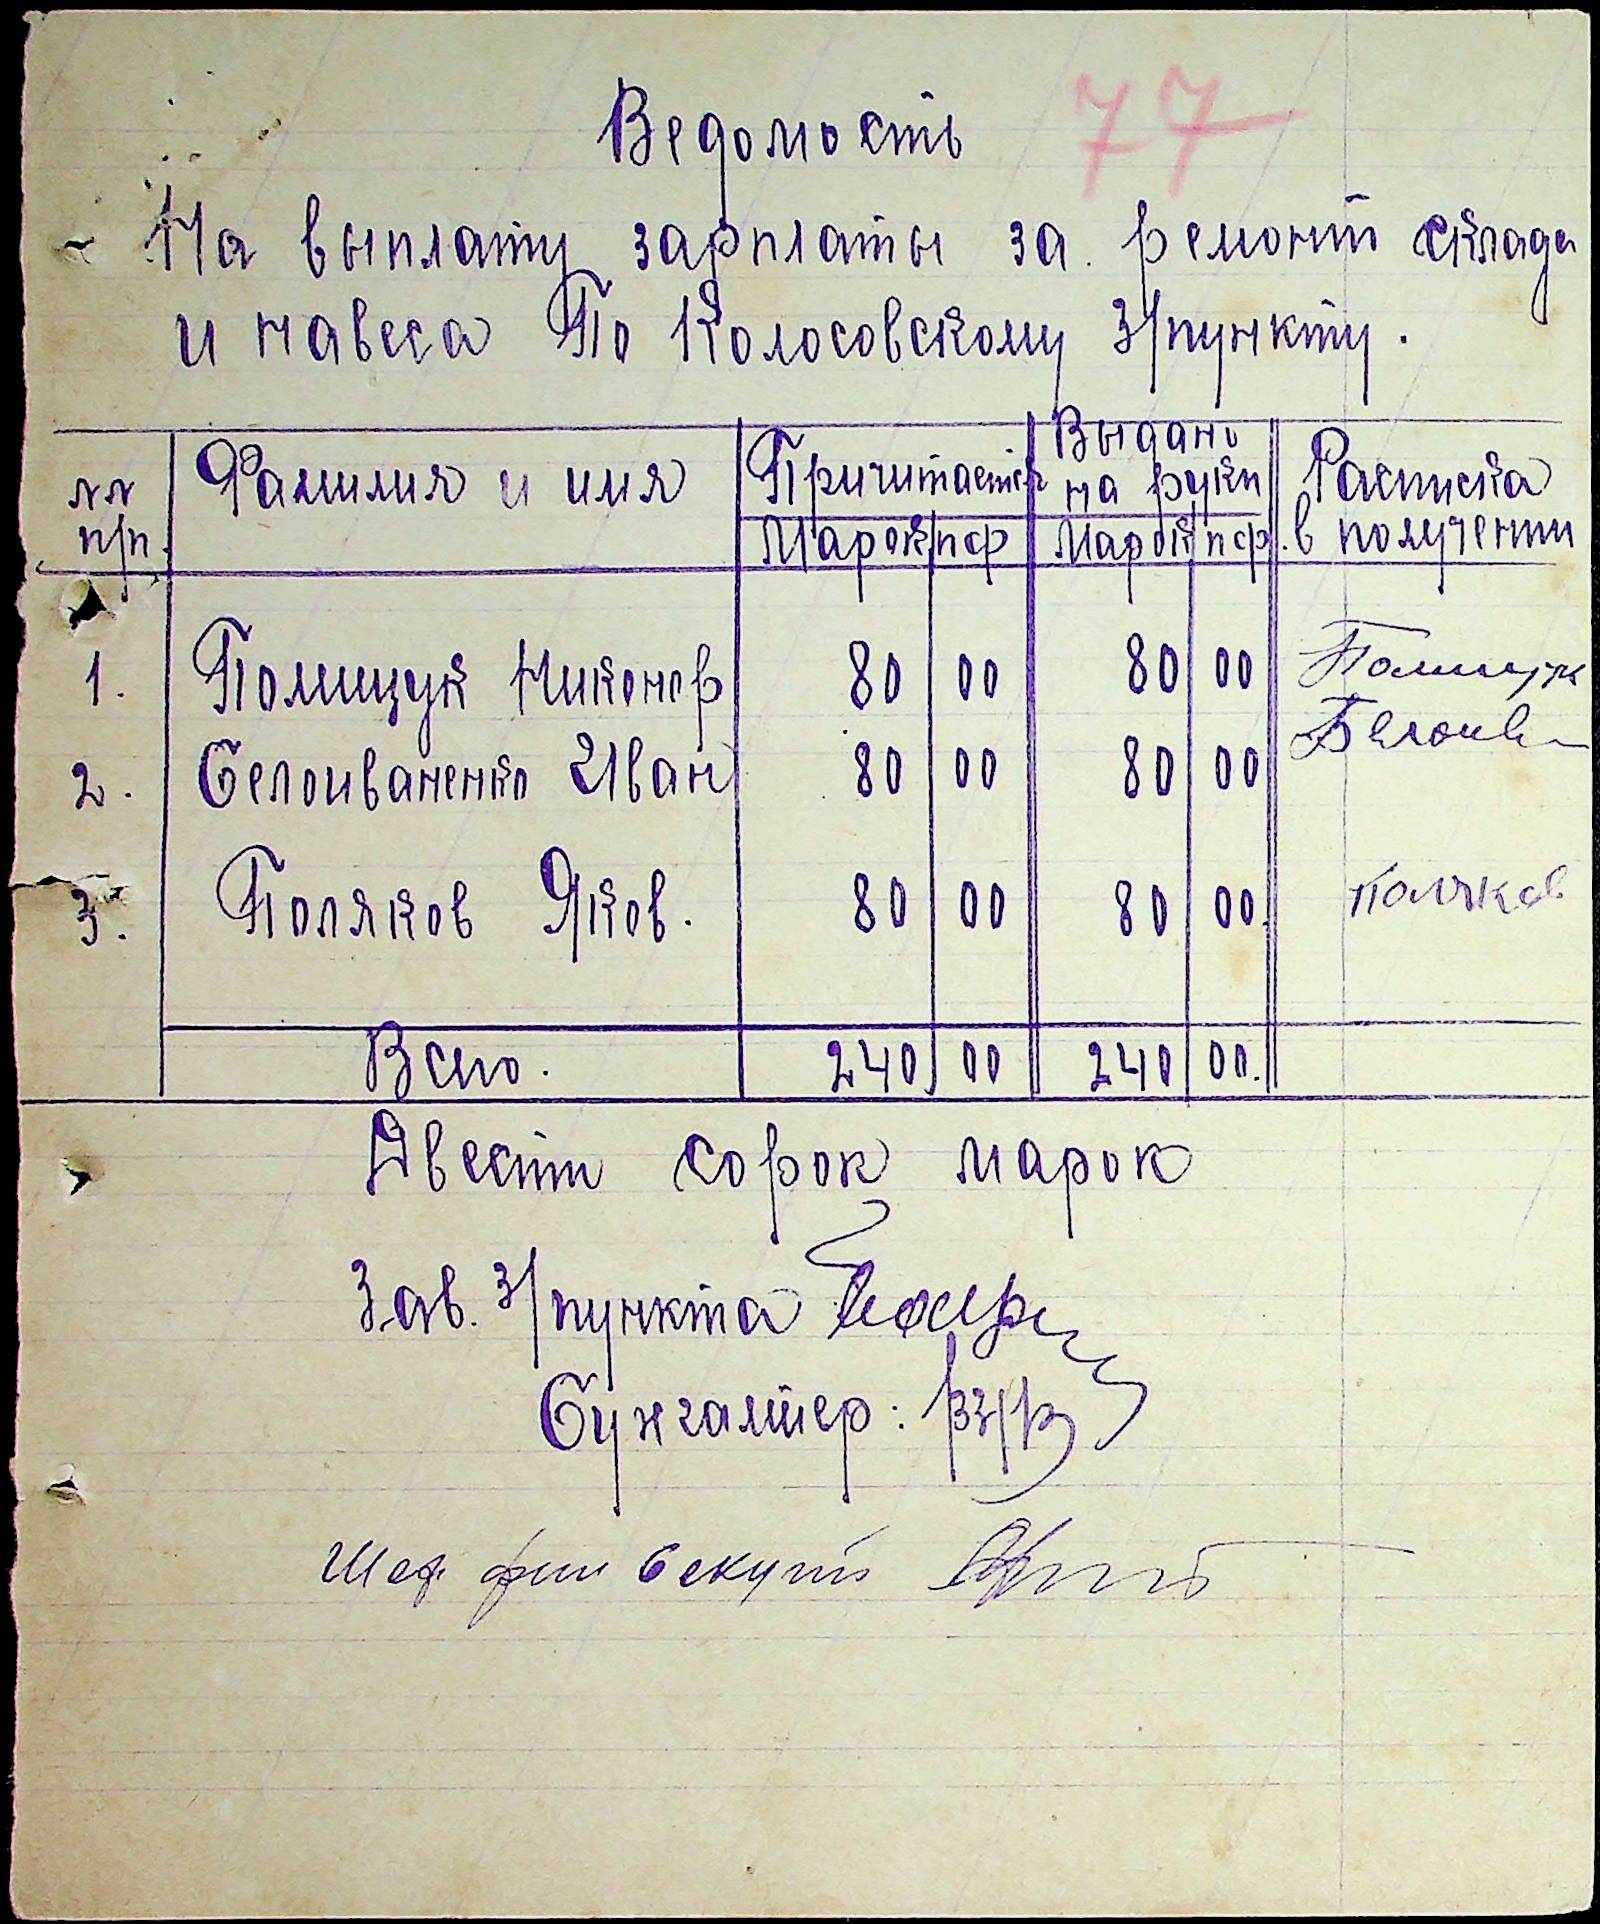 77
Ведомость
На выплату зарплаты за ремонт склада
и навеса По Колосовскому З/пункту.
№№ п/п. Фамилия и имя Причитается Выдано на руки Расписка в получении
Марок пф Марок пф.
1. Полищук Никонор 80 00 80 00 Полищук
2. Белоиваненко Иван 80 00 80 00 Белоив
3. Поляков Яков. 80 00 80 00. Поляков
Всего. 240 00 240 00.
Двести сорок марок
Зав. З/пункта
Бухгалтер:
Шеф фин